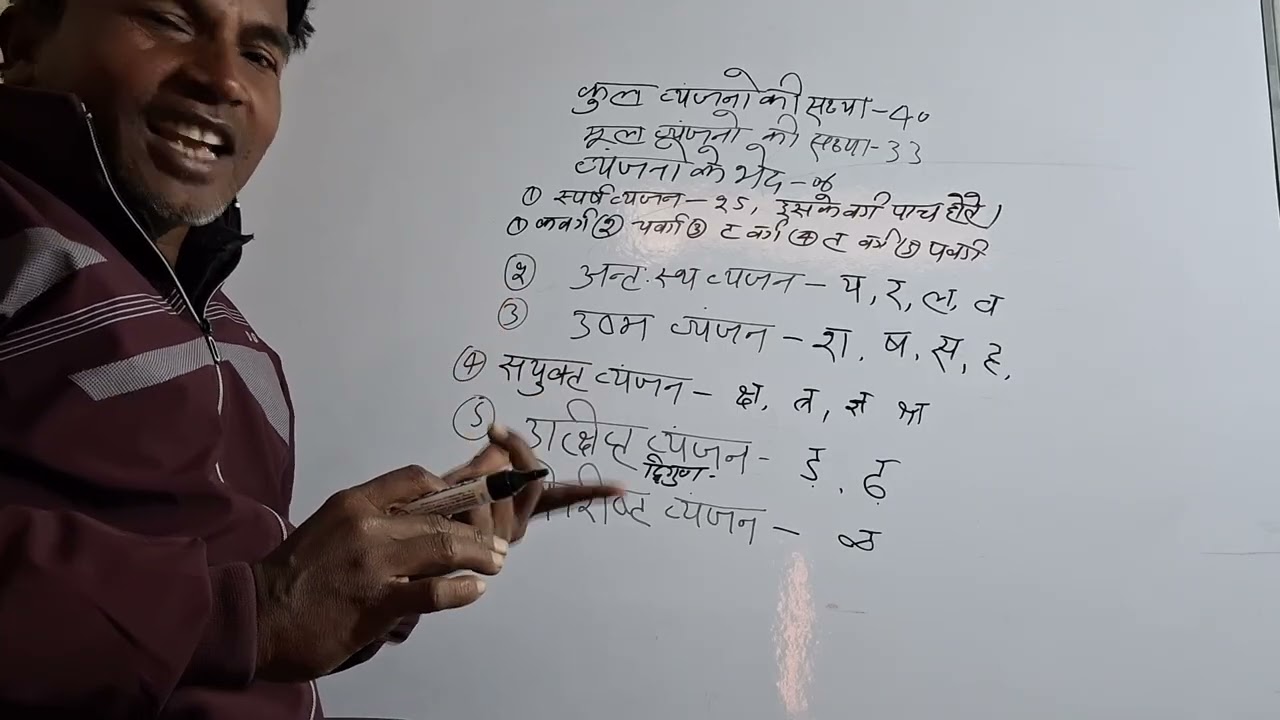 कुल व्यंजनो की सख्या-40
मूल व्यंजनो की सख्या-33
व्यंजनो के भेद-
① स्पर्ष व्यजन-२5, इसके वर्ग पाच होते।
① कवर्ग ② चवर्ग ③ ट वर्ग ④ त वर्ग ⑤ पवर्ग
② अन्त:स्थ व्यजन- य, र, ल, व
③ उष्म व्यंजन- श, ष, स, ह,
④ सयुक्त व्यंजन- क्ष, त्र, ज्ञ श्र
⑤ व्यंजन- ड़, ढ़
द्विगुण-
व्यंजन- ळ